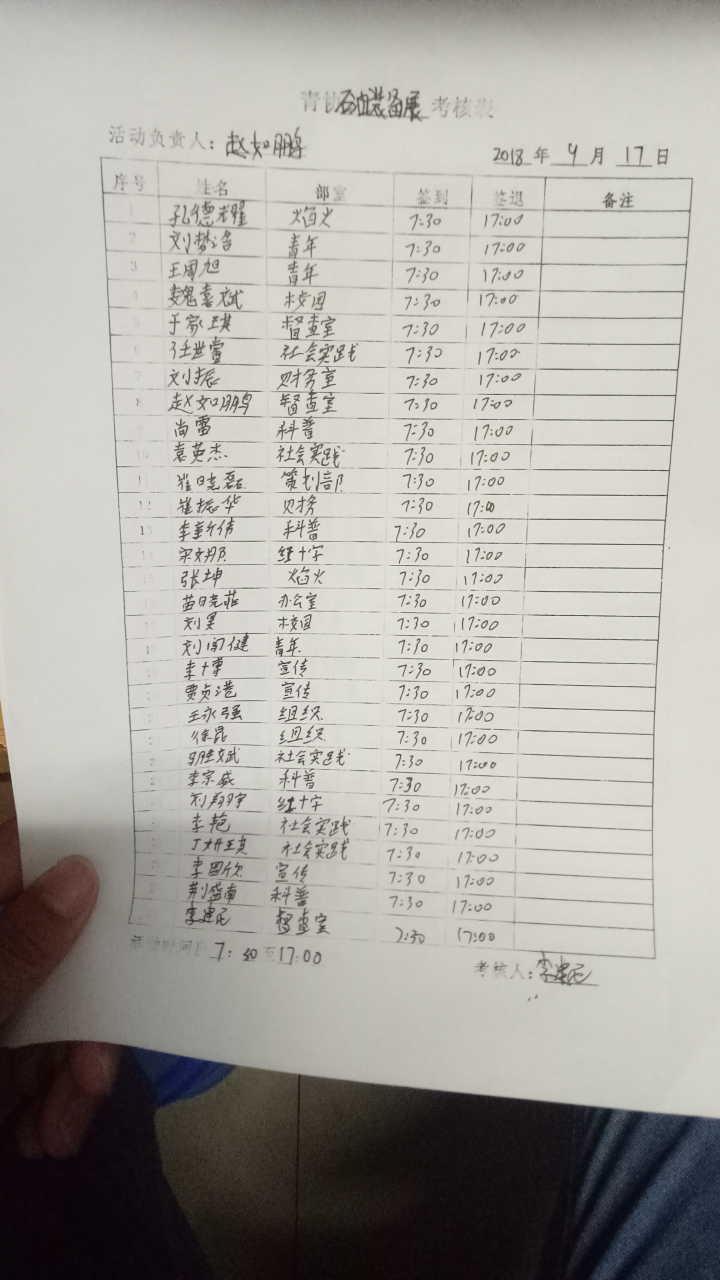 青协石油装备展考核表
活动负责人：赵如鹏 2018年4月17日
序号 姓名 部室 签到 签退 备注
1 孔德耀 焰火 7:30 17:00
2 刘梦 青年 7:30 17:00
3 王周旭 青年 7:30 17:00
4 魏嘉斌 校园 7:30 17:00
5 于家琪 督查室 7:30 17:00
6 任世雷 社会实践 7:30 17:00
7 刘振 财务室 7:30 17:00
8 赵如鹏 督查室 7:30 17:00
9 尚雷 科普 7:30 17:00
10 袁英杰 社会实践 7:30 17:00
11 崔晓磊 策划部 7:30 17:00
12 崔振华 财务 7:30 17:00
13 李新伟 科普 7:30 17:00
14 宋娜 红十字 7:30 17:00
15 张坤 焰火 7:30 17:00
苗晓菲 办公室 7:30 17:00
刘昊 校园 7:30 17:00
刘闻健 青年 7:30 17:00
李十博 宣传 7:30 17:00
贾贞港 宣传 7:30 17:00
王永强 组织 7:30 17:00
徐昆 组织 7:30 17:00
斌 社会实践 7:30 17:00
李宗威 科普 7:30 17:00
刘翔宇 红十字 7:30 17:00
李艳 社会实践 7:30 17:00
丁妍琪 社会实践 7:30 17:00
李国欣 宣传 7:30 17:00
荆盛南 科普 7:30 17:00
李建民 督查室 7:30 17:00
活动时间：7:30至17:00 考核人：李建民